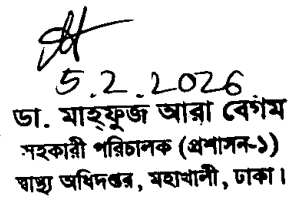 5.2.2026
ডা. মাহ্ফুজ আরা বেগম
সহকারী পরিচালক (প্রশাসন-১)
স্বাস্থ্য অধিদপ্তর, মহাখালী, ঢাকা।